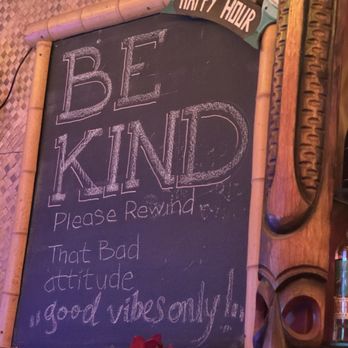 HAPPY HOUR
BE
KIND
Please Rewind
That Bad
attitude
,,good vibes only!..